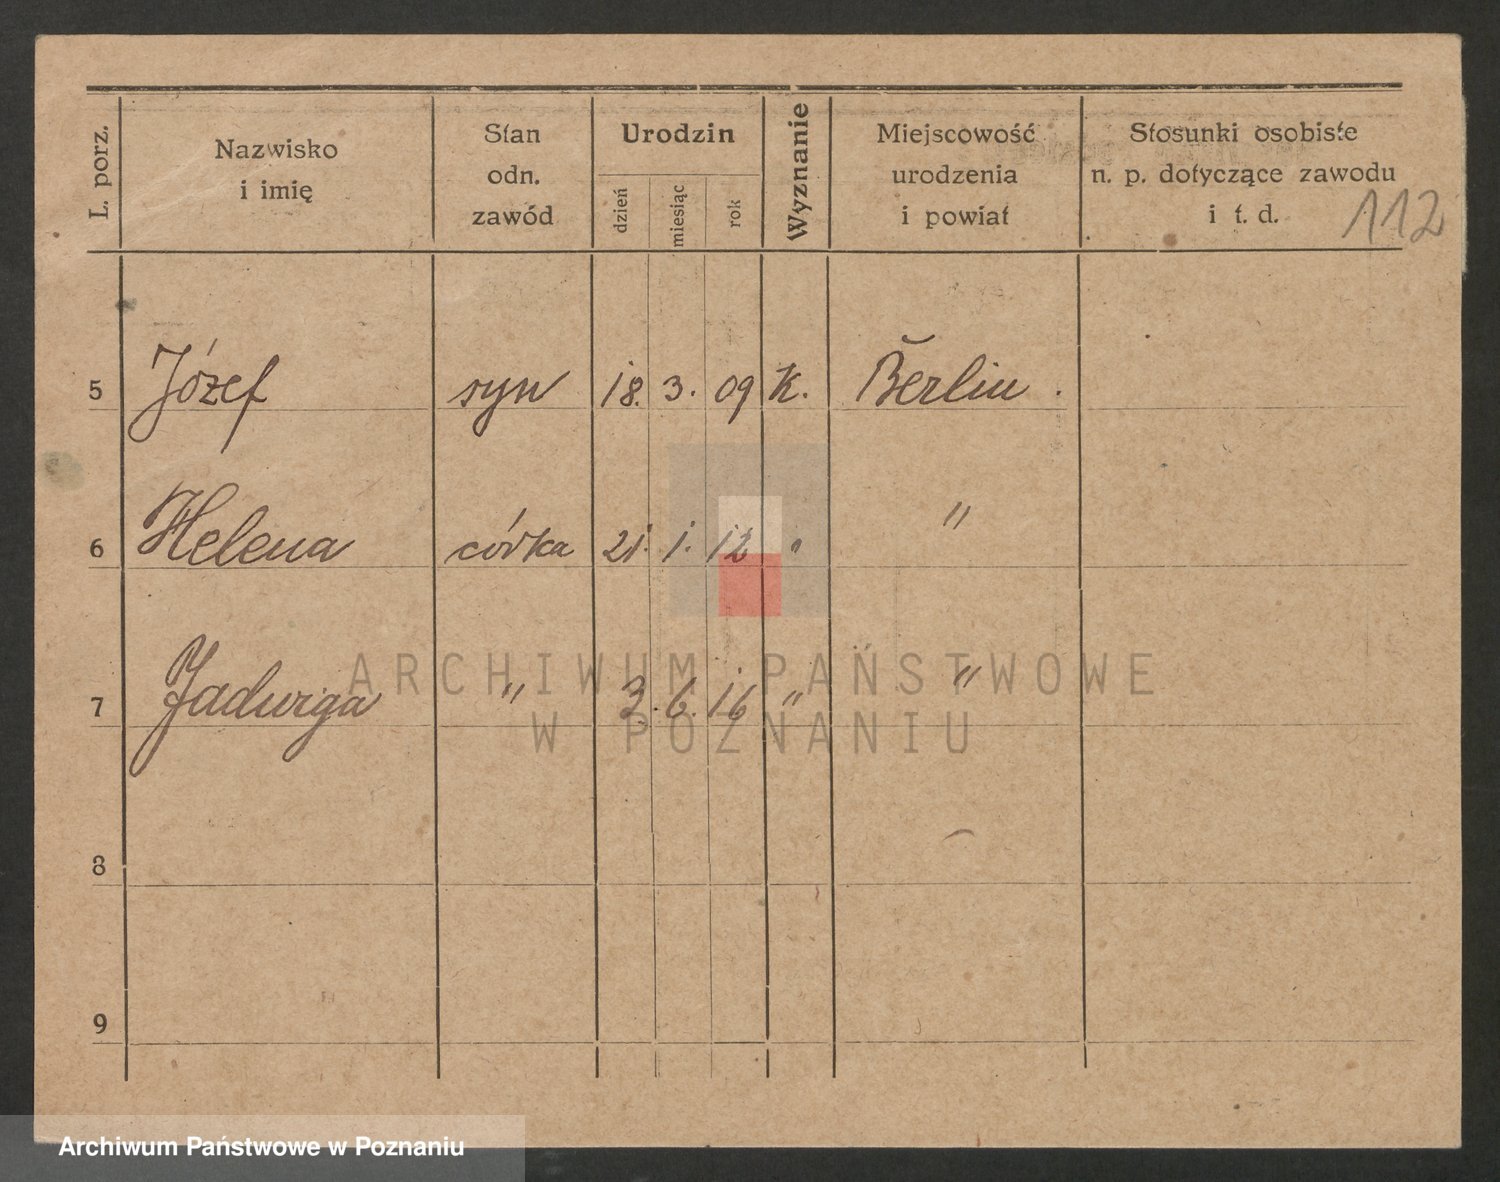 L. porz.
Nazwisko
i imię
Stan
odn.
zawód
Urodzin
dzień
miesiąc
rok
Wyznanie
Miejscowość
urodzenia
i powiat
Stosunki osobiste
n. p. dotyczące zawodu
i t. d.
112
5 Józef syn 18. 3. 09 K. Berlin .
6 Helena córka 21. 1. 12 " "
7 Jadwiga " 3. 6. 16 " "
8
9
ARCHIWUM PAŃSTWOWE
W POZNANIU
Archiwum Państwowe w Poznaniu